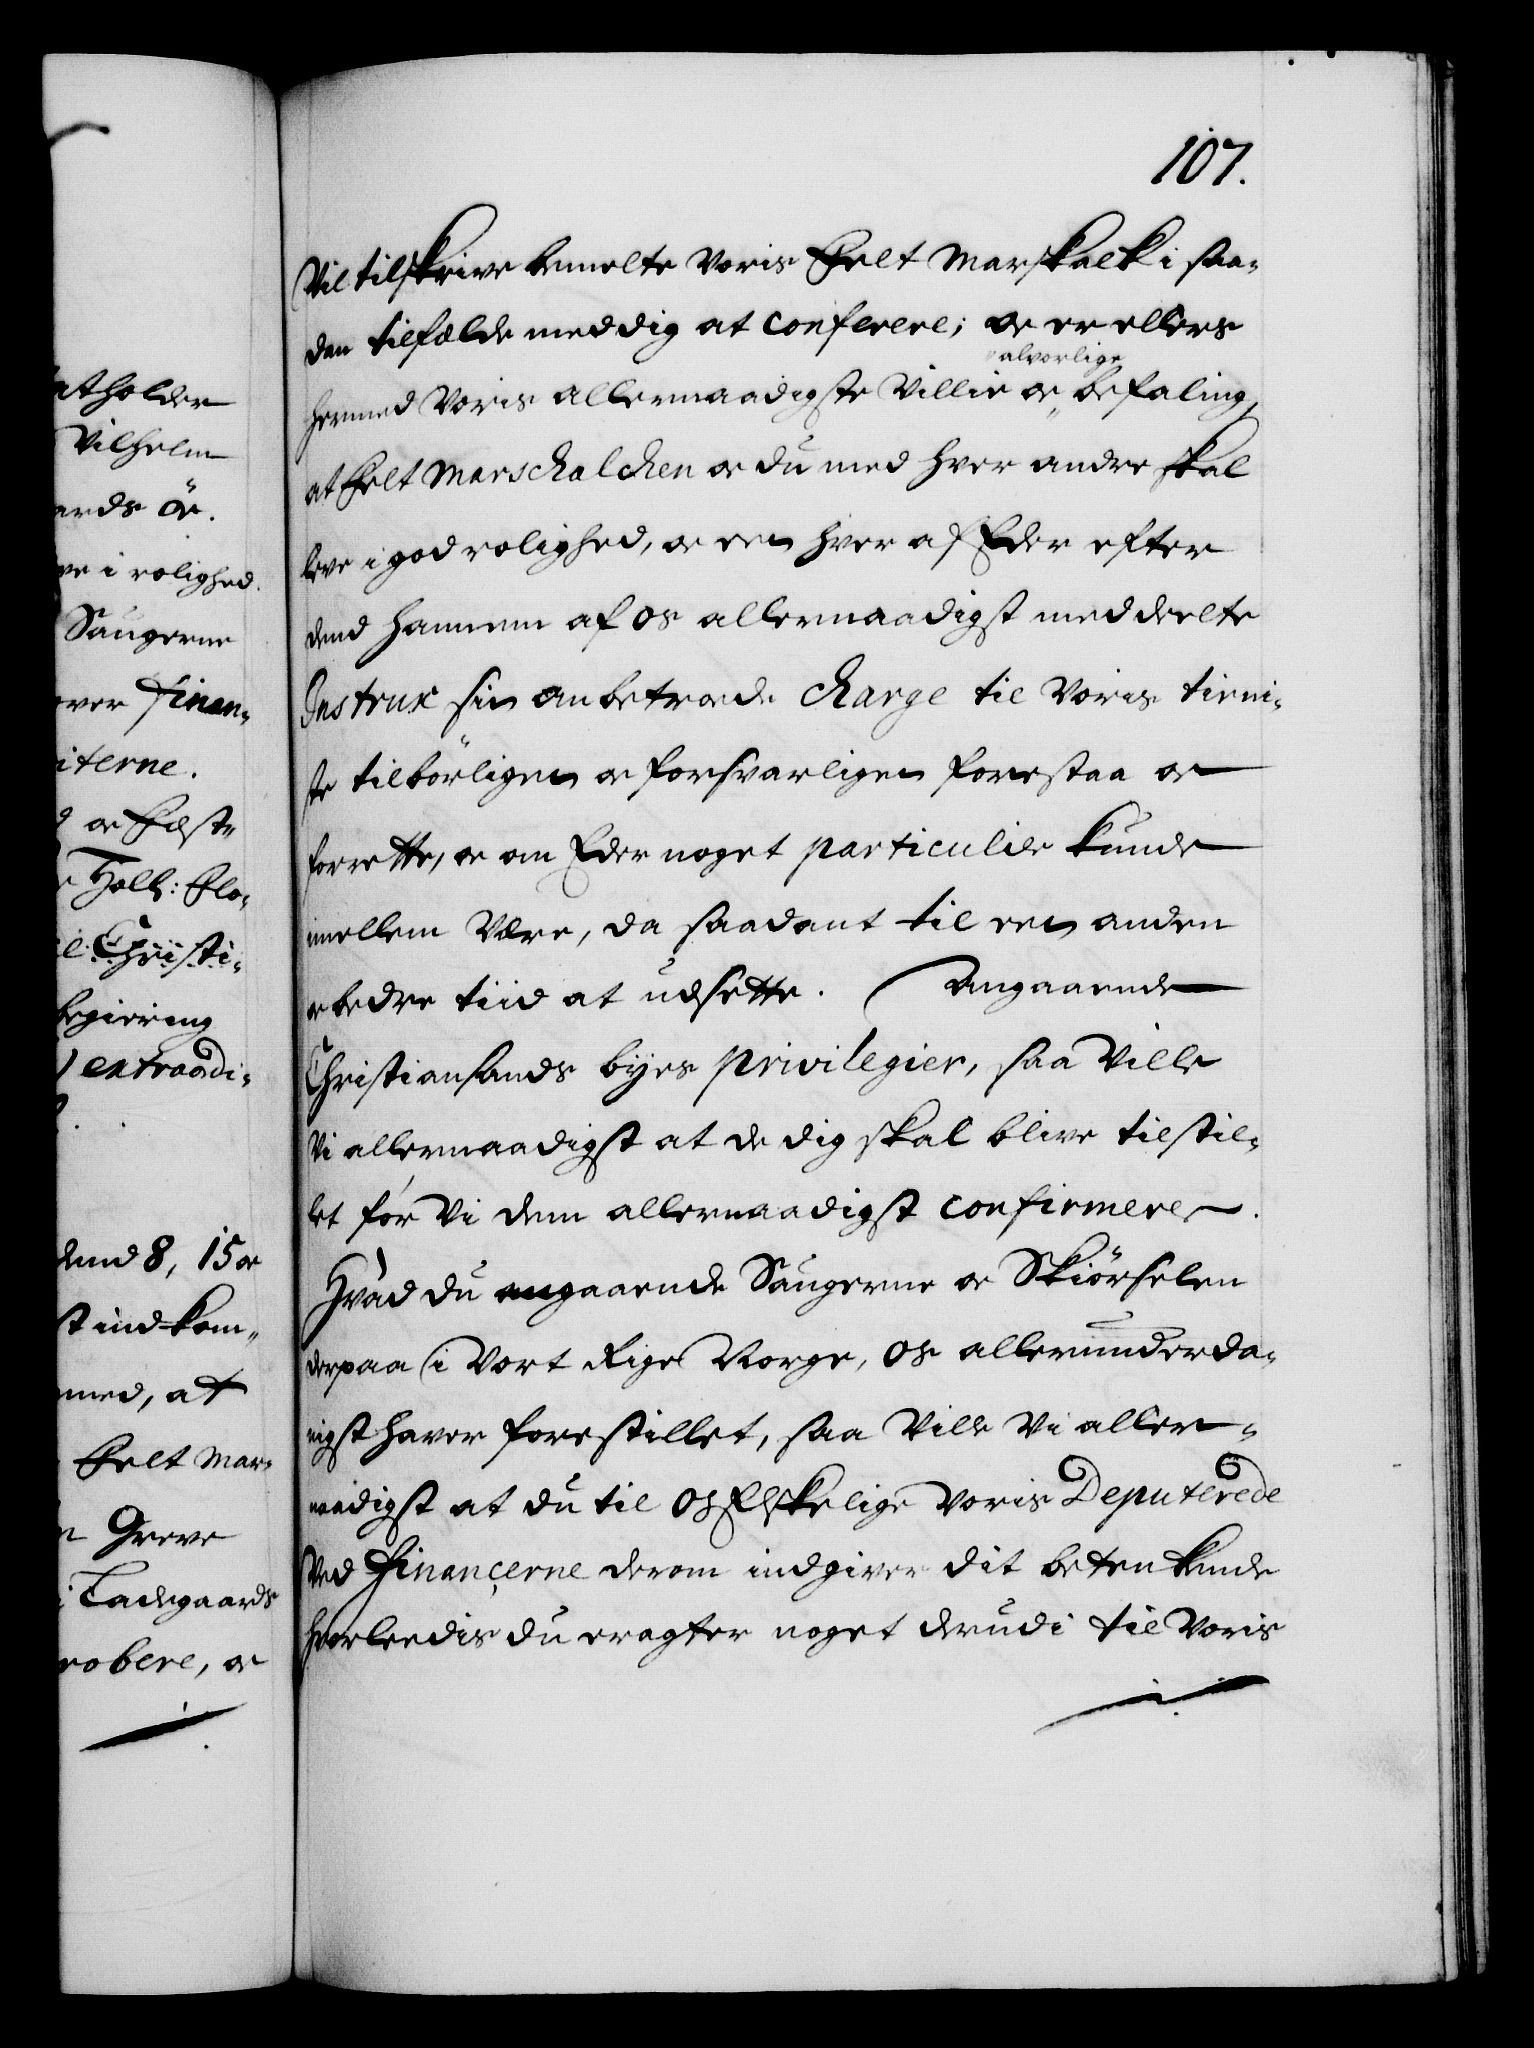 107.
Vil tilskrive bemelte Voris Felt Marskalk i saa-
dan tilfælde med dig at conferere; oc er ellers
alvorlige
hermed Voris allernaadigste Villie oc befaling,
at Felt Marschalchen oc du med hver andre skal
leve i god rolighed, oc een hver af Eder efter
dend hannem af os allernaadigst meddeelte
Instrux sin anbetroede Charge til Voris tieni-
ste tilbörligen oc forsvarligen forestaa oc
forrette, oc om Eder noget particulier kunde
imellem være, da saadant til een anden
oc bedre tiid at udsette. Angaaende
Christiansands byes privilegier, saa Ville
Vi allernaadigst at de dig skal blive tilstil-
let för Vi dem allernaadigst confirmerer.
Hvad du angaaende Saugerne oc Skiörselen
derpaa i Vort Rige Norge, os allerunderda-
nigst haver forestillet, saa Ville Vi aller-
naadigst at du til Os Elskelige Voris Deputerede
Ved Financerne derom indgiver dit betenkende
hvorleedis du eragter noget derudi til Voris
atholder
Vilhelm
ards ör.
ve i rolighed.
Saugerne
over Finan-
iterne.
oc Fæst-
Holl: Flo-
Christi-
begiering
extraordi-
dend 8, 15 oc
st indkom-
med, at
Felt Mar-
Greve
Ladegaards
robere, oc